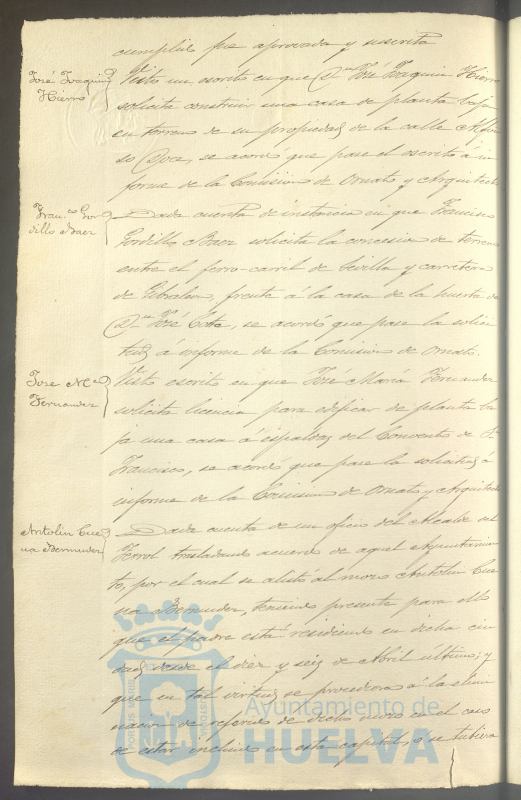 cumplido fue aprovada y suscrita
José Joaquin
Hierro
Visto un escrito en que Dn José Joaquin Hierro
solicita construir una casa de planta baja
en terreno de su propiedad de la calle Alfon
so Doce, se acordó que pase el escrito á in
forme de la Comision de Ornato y Arquitecto
Franco Gor
dillo Baez
Dada cuenta de instancia en que Francisco
Gordillo Baez solicita la concesion de terreno
entre el ferro-carril de Sevilla y carretera
de Gibraleon, frente á la casa de la huerta de
Dn José Cota, se acordó que pase la solici
tud á informe de la Comision de Ornato.
José Ma
Fernandez
Visto escrito en que José María Fernandez
solicita licencia para edificar de planta ba
ja una casa á espaldas del Convento de S.
Francisco, se acordó que pase la solicitud á
informe de la Comision de Ornato y Arquitecto
Antolin Cue
va Bermudez
Dada cuenta de un oficio del Alcalde del
Ferrol trasladando acuerdo de aquel Ayuntamien
to, por el cual se alistó al mozo Antolin Cue
va Bermudez, teniendo presente para ello
que el padre está residiendo en dicha ciu
dad desde el diez y seis de Abril último; y
que en tal virtud se procediera á la elimi
nacion de referido de dicho mozo en el caso
de estar incluido en esta capital, ó se tubiera
PORTUS MARIS
CUSTODIA
Ayuntamiento de
HUELVA